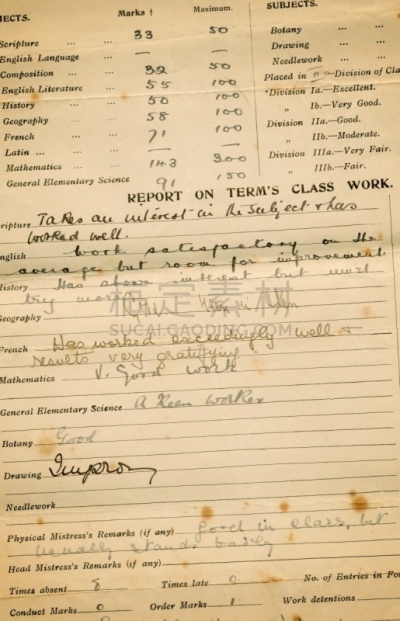 JECTS. Marks † Maximum. SUBJECTS.
Scripture ... ... 33 50 Botany ...
English Language ... — — Drawing ...
Composition ... ... 32 50 Needlework ...
English Literature ... 55 100 Placed in Division of Cla
History ... ... 50 100 *Division Ia.—Excellent.
Geography ... ... 58 100 „ Ib.—Very Good.
French ... ... 71 100 Division IIa.—Good.
Latin ... ... — — „ IIb.—Moderate.
Mathematics ... ... 143 300 Division IIIa.—Very Fair.
General Elementary Science 91 150 „ IIIb.—Fair.
REPORT ON TERM'S CLASS WORK.
ripture Takes an interest in the subject & has
worked well.
nglish Work satisfactory on the
average, but room for improvement.
History Has shown interest but must
try more
稿定素材
Geography
SUCAI.GAODING.COM
French Has worked exceedingly well &
results very gratifying
Mathematics V. Good work
General Elementary Science A keen worker
Botany Good
Drawing
Needlework
Physical Mistress's Remarks (if any) Good in class, but
usually stands badly
Head Mistress's Remarks (if any)
Times absent 8 Times late 0 No. of Entries in For
Conduct Marks 0 Order Marks 1 Work detentions